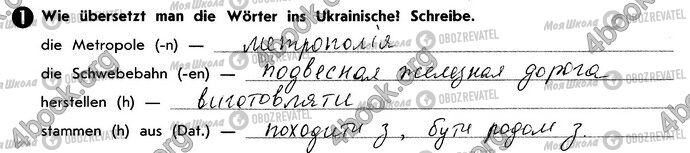 1 Wie übersetzt man die Wörter ins Ukrainische? Schreibe.
die Metropole (-n) — метрополія
die Schwebebahn (-en) — подвесная железная дорога
herstellen (h) — виготовляти
stammen (h) aus (Dat.) — походити з, бути родом з.